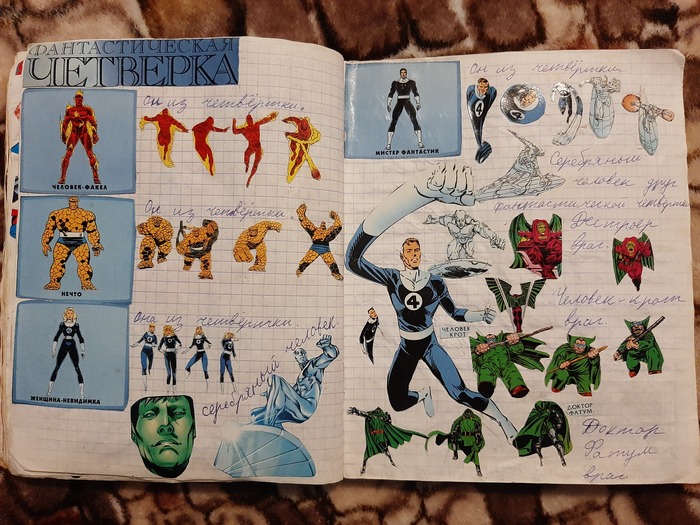 ФАНТАСТИЧЕСКАЯ
ЧЕТВЕРКА
Он из четвёртки.
ЧЕЛОВЕК-ФАКЕЛ
Он из четвёртки.
НЕЧТО
Она из четвёртки.
серебряный человек
ЖЕНЩИНА-НЕВИДИМКА
Он из четвёртки.
МИСТЕР ФАНТАСТИК
4
Серебряный
человек друг
фантастической четвёртки
Дестроер
враг.
4
Человек-крот
враг.
ЧЕЛОВЕК
КРОТ
ДОКТОР
ФАТУМ
Доктор
Фатум
враг